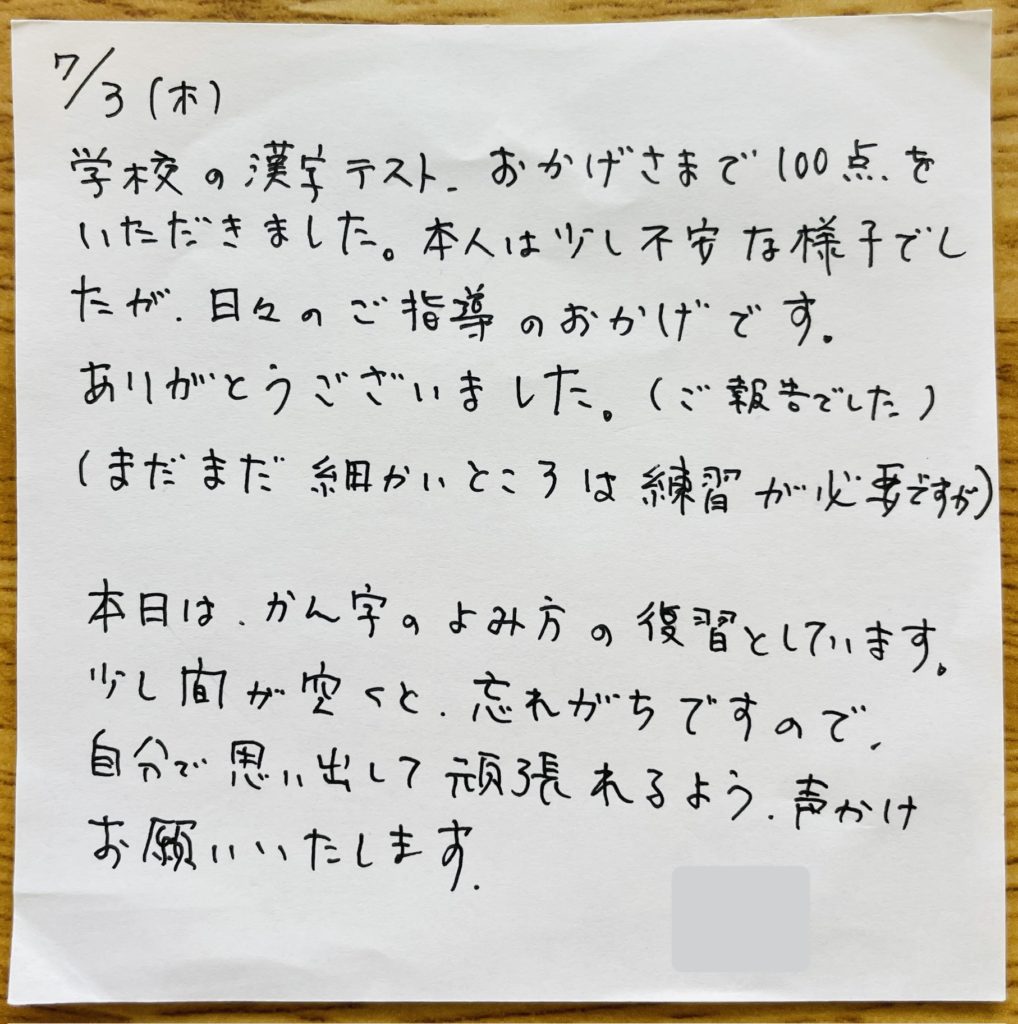 7/3(木)
学校の漢字テスト、おかげさまで100点を
いただきました。本人は少し不安な様子でし
たが、日々のご指導のおかげです。
ありがとうございました。(ご報告でした)
(まだまだ細かいところは練習が必要ですが)
本日は、かん字のよみ方の復習としています。
少し間が空くと、忘れがちですので、
自分で思い出して頑張れるよう、声かけ
お願いいたします。